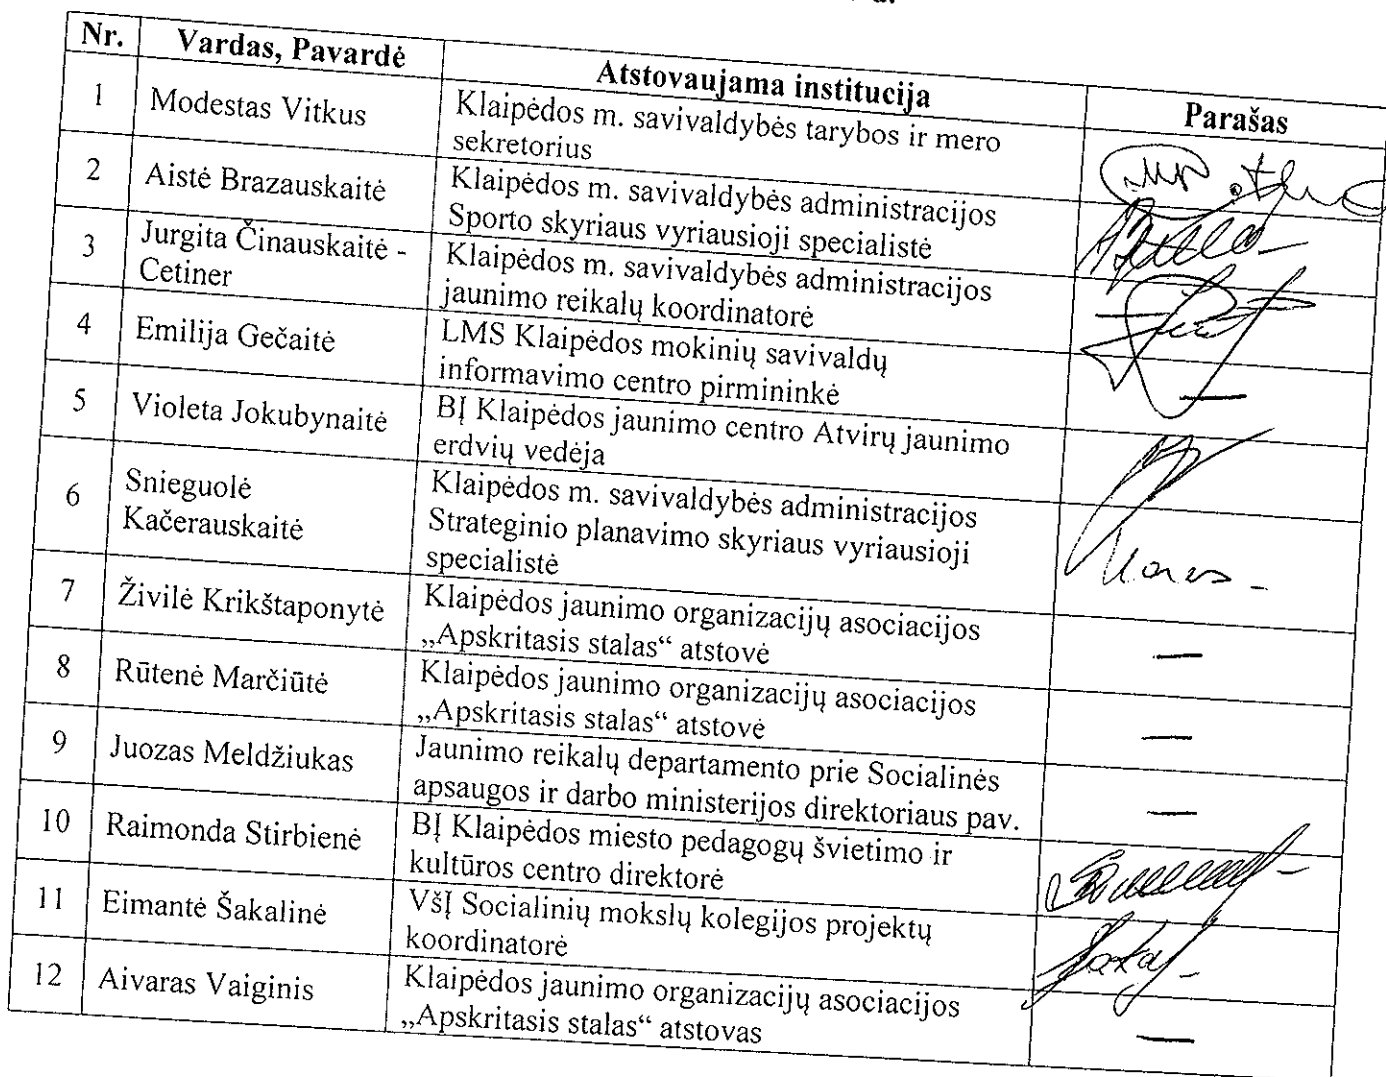 Nr. Vardas, Pavardė Atstovaujama institucija Parašas
1 Modestas Vitkus Klaipėdos m. savivaldybės tarybos ir mero
sekretorius
2 Aistė Brazauskaitė Klaipėdos m. savivaldybės administracijos
Sporto skyriaus vyriausioji specialistė
3 Jurgita Činauskaitė - Klaipėdos m. savivaldybės administracijos
Cetiner jaunimo reikalų koordinatorė
4 Emilija Gečaitė LMS Klaipėdos mokinių savivaldų
informavimo centro pirmininkė —
5 Violeta Jokubynaitė BĮ Klaipėdos jaunimo centro Atvirų jaunimo
erdvių vedėja
6 Snieguolė Klaipėdos m. savivaldybės administracijos
Kačerauskaitė Strateginio planavimo skyriaus vyriausioji
specialistė
7 Živilė Krikštaponytė Klaipėdos jaunimo organizacijų asociacijos
„Apskritasis stalas“ atstovė —
8 Rūtenė Marčiūtė Klaipėdos jaunimo organizacijų asociacijos
„Apskritasis stalas“ atstovė —
9 Juozas Meldžiukas Jaunimo reikalų departamento prie Socialinės
apsaugos ir darbo ministerijos direktoriaus pav. —
10 Raimonda Stirbienė BĮ Klaipėdos miesto pedagogų švietimo ir
kultūros centro direktorė
11 Eimantė Šakalinė VšĮ Socialinių mokslų kolegijos projektų
koordinatorė
12 Aivaras Vaiginis Klaipėdos jaunimo organizacijų asociacijos
„Apskritasis stalas“ atstovas —